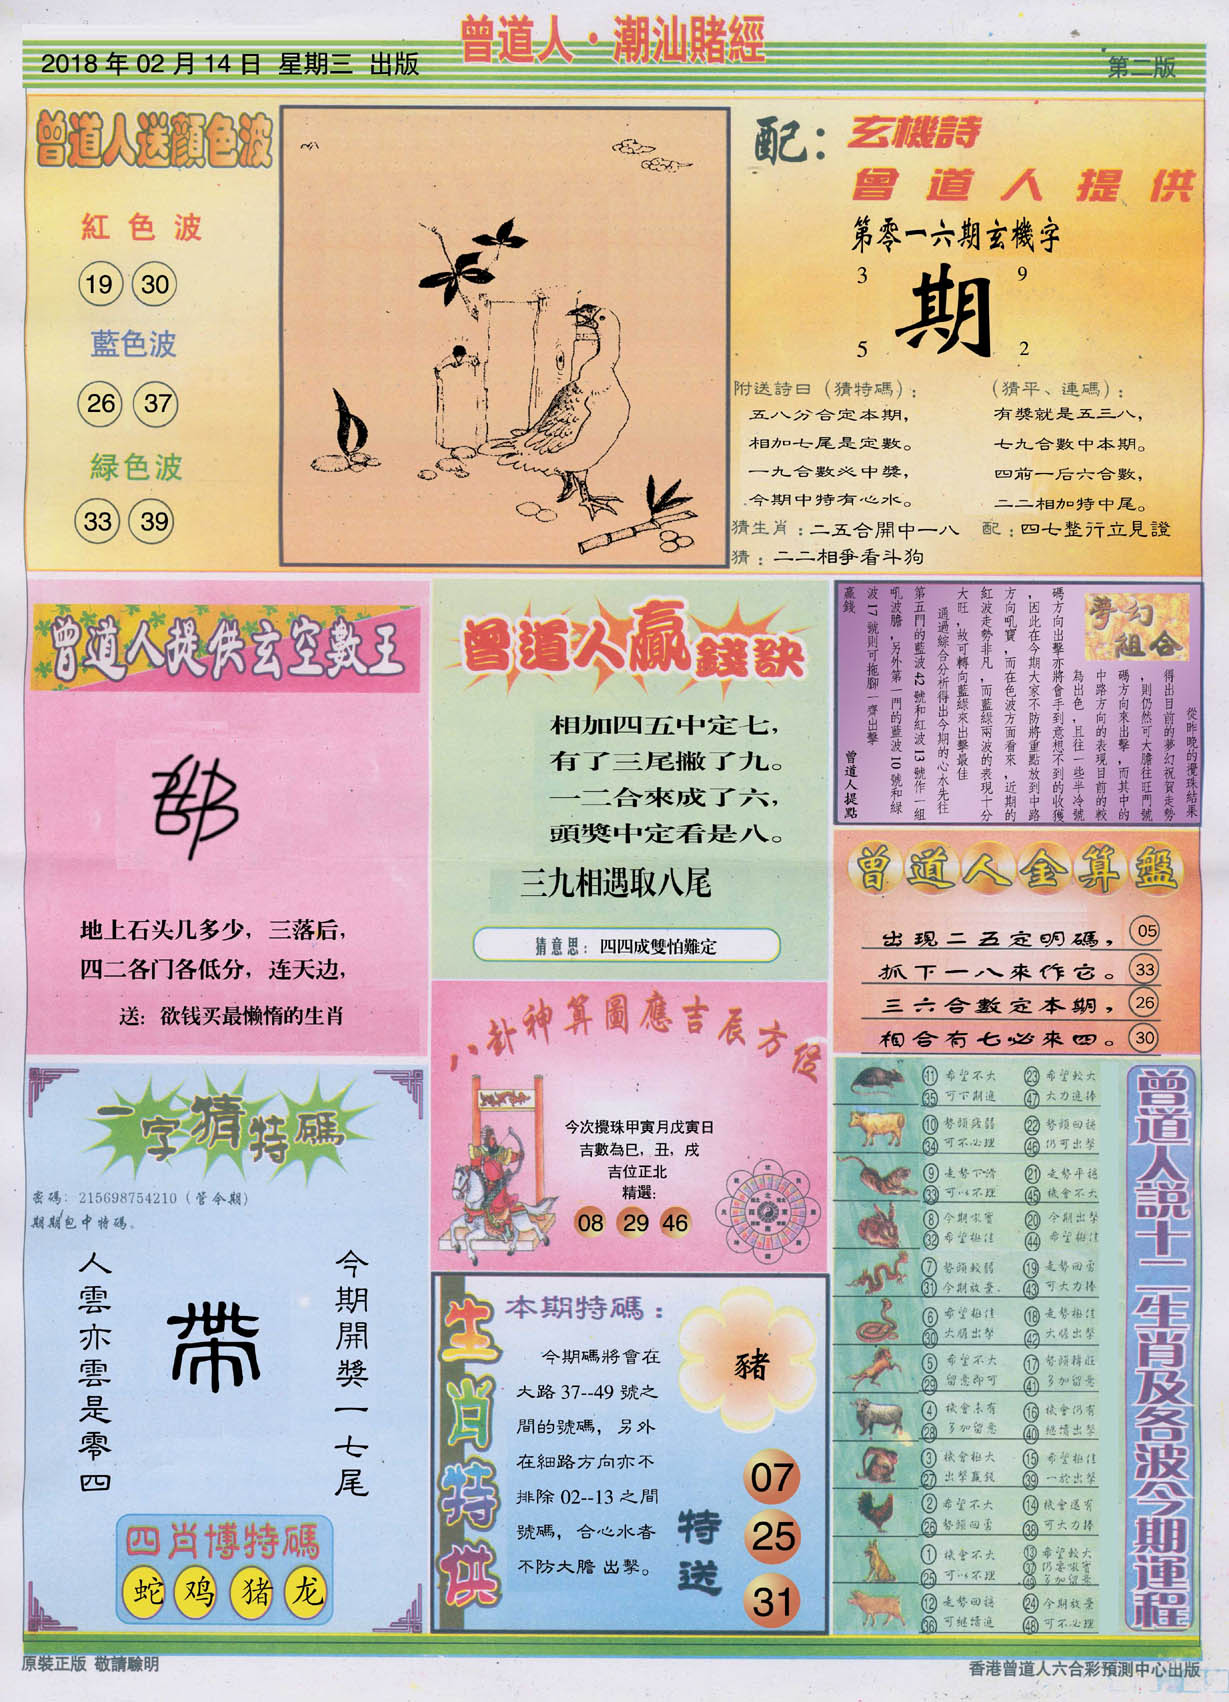 曾道人·潮汕賭經
2018 年 02 月 14 日 星期三 出版
第二版
曾道人送顏色波
紅色波
19 30
藍色波
26 37
緑色波
33 39
配：玄機詩
曾道人提供
第零一六期玄機字
3 9
期
5 2
附送詩曰（猜特碼）：
五八分合定本期，
相加七尾是定數。
一九合數必中獎，
今期中特有心水。
（猜平、連碼）：
有獎就是五三八，
七九合數中本期。
四前一后六合數，
二二相加特中尾。
猜生肖：二五合開中一八
配：四七整行立見證
猜：二二相爭看斗狗
曾道人提供玄空數王
地上石头几多少，三落后，
四二各门各低分，连天边，
送：欲钱买最懒惰的生肖
曾道人贏錢訣
相加四五中定七，
有了三尾撇了九。
一二合來成了六，
頭獎中定看是八。
三九相遇取八尾
猜意思：四四成雙怕難定
夢幻組合
從昨晚的攪珠結果
得出目前的夢幻祝賀走勢
，則仍然可大膽往旺門號
碼方向來出擊，而其中的
中路方向的表現目前的較
為出色，且往一些半冷號
碼方向出擊亦將會手到意想不到的收獲
，因此在今期大家不防將重點放到中路
方向吼寶，而在色波方面看來，近期的
紅波走勢非凡，而藍綠兩波的表現十分
大旺，故可轉向藍綠來出擊最佳
通過綜合分析得出今期的心水先往
第五門的藍波 42 號和紅波 13 號作一組
吼波膽，另外第一門的藍波 10 號和綠
波 17 號則可拖腳一齊出擊
贏錢
曾道人提點
曾道人金算盤
出現二五定明碼， 05
抓下一八來作它。 33
三六合數定本期， 26
相合有七必來四。 30
八卦神算圖應吉辰方位
今次攪珠甲寅月戊寅日
吉數為巳，丑，戌
吉位正北
精選：
08 29 46
一字猜特碼
密碼：215698754210（管今期）
期期包中特碼。
今期開獎一七尾
帶
人雲亦雲是零四
四肖博特碼
蛇 鸡 猪 龙
生肖特供
本期特碼：
今期碼將會在
大路 37--49 號之
間的號碼，另外
在細路方向亦不
排除 02--13 之間
號碼，合心水者
不防大膽出擊。
豬
特送
07
25
31
曾道人説十二生肖及各波今期運程
11 希望不大 23 希望較大
35 可下期進 47 大力進捧
10 勢頭疲弱 22 勢頭回穩
34 可不必理 46 仍可出擊
9 走勢下滑 21 走勢平穩
33 可以不理 45 機會不大
8 今期吼寶 20 今期出擊
32 希望極佳 44 希望極佳
7 勢頭較弱 19 走勢回勇
31 今期放棄 43 可大力捧
6 希望極佳 18 走勢極佳
30 大膽出擊 42 大膽出擊
5 希望不大 17 勢頭轉旺
29 留意即可 41 多加留意
4 機會未有 16 機會仍有
28 多加留意 40 繼續出擊
3 機會極大 15 希望極佳
27 出擊贏錢 39 一於出擊
2 希望不大 14 機會還有
26 勢頭回勇 38 可大力捧
1 機會不大 13 希望較大
25 可以不理 37 仍要吼寶
49 多加留意
12 走勢回穩 24 今期放棄
36 可繼續進 48 可不必理
原裝正版 敬請驗明
香港曾道人六合彩預測中心出版